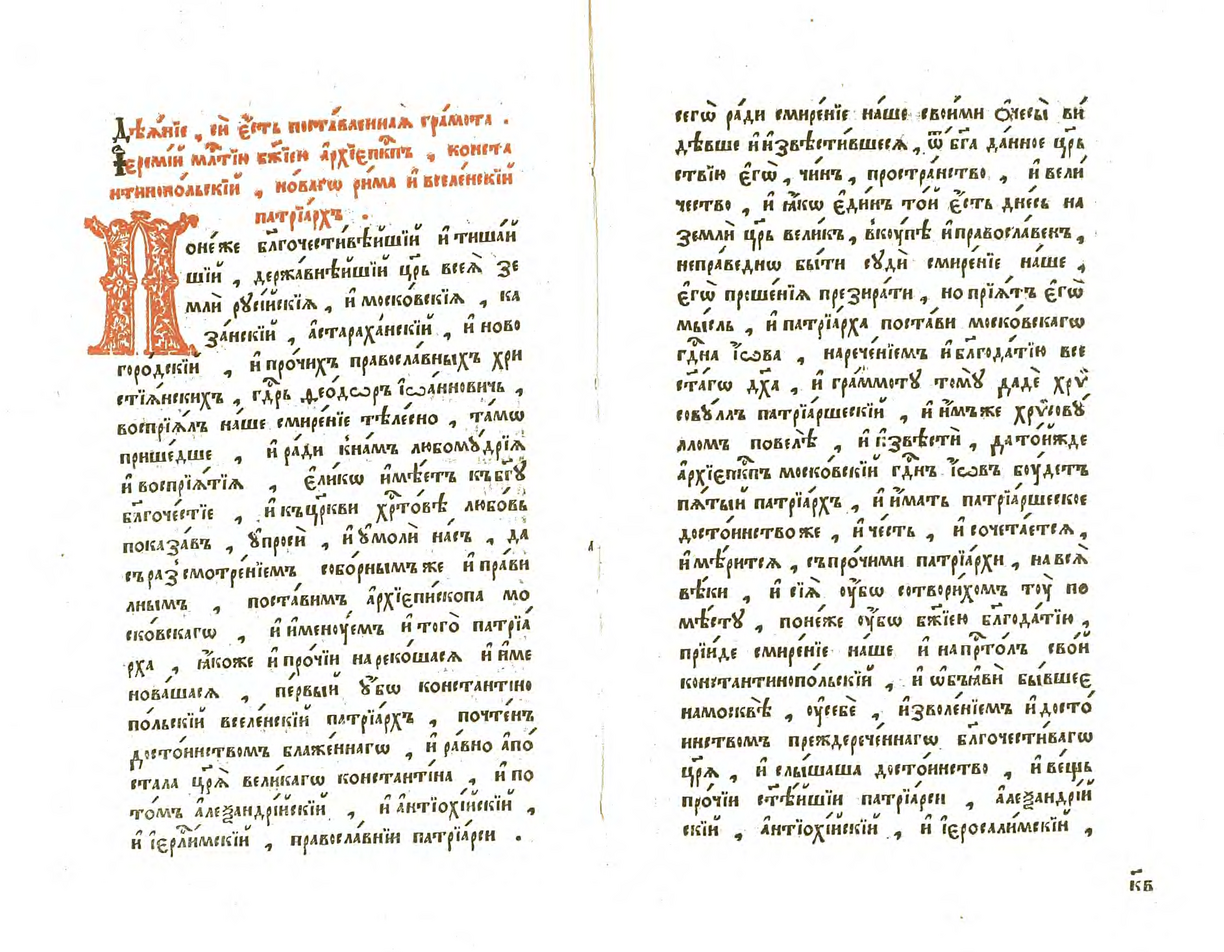 Дѣѧ́нїе , сѝ є҆́сть поста́вленнаѧ гра́мота .
І҆еремі́й мл҃тїю бж҃їею а҆рхїепⷭ҇кпъ , конста
нтинопо́льскїй , но́вагѡ ри́ма и҆ вселе́нскїй
патрїа́рхъ .
Поне́же бл҃гочести́вѣйшїй и҆ тиша́й
шїй , держа́внѣйшїй цр҃ь всеѧ̀ зе
млѝ рꙋсі́йскїѧ , и҆ моско́вскїѧ , ка
за́нскїй , а҆страха́нскїй , и҆ ново
горо́дскїй , и҆ про́чихъ правосла́вныхъ хри
стїѧ́нскихъ , гдⷭ҇рь ѳео́дѡръ і҆ѡа́нновичь ,
воспрїѧ́лъ на́ше смире́нїе тѣле́сно , та́мѡ
прише́дше , и҆ ра́ди к̾на́мъ любомꙋ́дрїѧ
и҆ воспрїѧ́тїѧ , є҆ли́кѡ и҆мѣ́етъ къ бг҃ꙋ
бл҃гоче́стїе , и҆ къ цр҃кви хрⷭ҇то́вѣ любо́вь
показа́въ , ᲂу҆просѝ , и҆ ᲂу҆молѝ на́съ , да
съ раз̾смотре́нїемъ собо́рнымъ же и҆ пра́ви
лнымъ , поста́вимъ а҆рхїепи́скопа мо
ско́вскагѡ , и҆ и҆менꙋ́емъ и҆ того̀ патрїа́
рха , ꙗ҆́коже и҆ про́чїи нареко́шасѧ и҆ и҆ме
нова́шасѧ , пе́рвый ᲂу҆́бѡ константіно
по́льскїй вселе́нскїй патрїа́рхъ , почте́нъ
досто́инствомъ блаже́ннагѡ , и҆ ра́вно а҆по́
стала цр҃ѧ̀ вели́кагѡ константі́на , и҆ по
то́мъ а҆леѯандрі́йскїй , и҆ а҆нтїохі́йскїй ,
и҆ і҆ерⷭ҇ли́мскїй , правосла́внїи патрїа́рси .
сегѡ̀ ра́ди смире́нїе на́ше свои́ми ѻ҆чесы̀ ви́
дѣвше и҆ и҆звѣсти́вшеесѧ , ѿ бг҃а да́нное цр҃ь
ствїю є҆гѡ̀ , чи́нъ , простра́нство , и҆ вели́
чество , и҆ ꙗ҆́кѡ є҆ди́нъ то́й є҆́сть дне́сь на
землѝ цр҃ь вели́къ , вкꙋ́пѣ и҆ правосла́венъ ,
непра́веднѡ бы́ти сꙋдѝ смире́нїе на́ше ,
є҆гѡ̀ проше́нїѧ презира́ти , но прїѧ́тъ є҆гѡ̀
мы́сль , и҆ патрїа́рха поста́ви моско́вскагѡ
гдⷭ҇на і҆́ѡва , нарече́нїемъ и҆ бл҃года́тїю все
ст҃а́гѡ дх҃а , и҆ гра́ммотꙋ томꙋ̀ дадѐ хрѵ̈
совꙋ́ллъ патрїа́ршескїй , и҆ и҆́мъже хрѵ̈совꙋ́
лломъ повелѣ̀ , и҆ и҆звѣстѝ , да то́йжде
а҆рхїепⷭ҇кпъ моско́вскїй гдⷭ҇нъ і҆́ѡвъ бꙋ́детъ
пѧ́тый патрїа́рхъ , и҆ и҆́мать патрїа́ршеское
досто́инство же , и҆ че́сть , и҆ сочета́етсѧ ,
и҆ мѣ́ритсѧ , съ про́чими патрїа́рхи , на всѧ̀
вѣ́ки , и҆ сїѧ̀ ᲂу҆́бѡ сотвори́хомъ тꙋ̀ по
мѣ́стꙋ , поне́же ᲂу҆́бѡ бж҃їею бл҃года́тїю ,
прїи́де смире́нїе на́ше и҆ на прⷭ҇то́лъ сво́й
константинопо́льскїй , и҆ ѡ҆бъѧвѝ бы́вшее
на москвѣ̀ , ᲂу҆ себѐ , и҆зволе́нїемъ и҆ досто́
инствомъ преждерече́ннагѡ бл҃гочести́вагѡ
цр҃ѧ̀ , и҆ слы́шаша досто́инство , и҆ ве́щь
про́чїи ст҃ѣ́йшїи патрїа́рси , а҆леѯандрі́й
скїй , а҆нтїохі́йскїй , и҆ і҆еросали́мскїй ,
к҃в